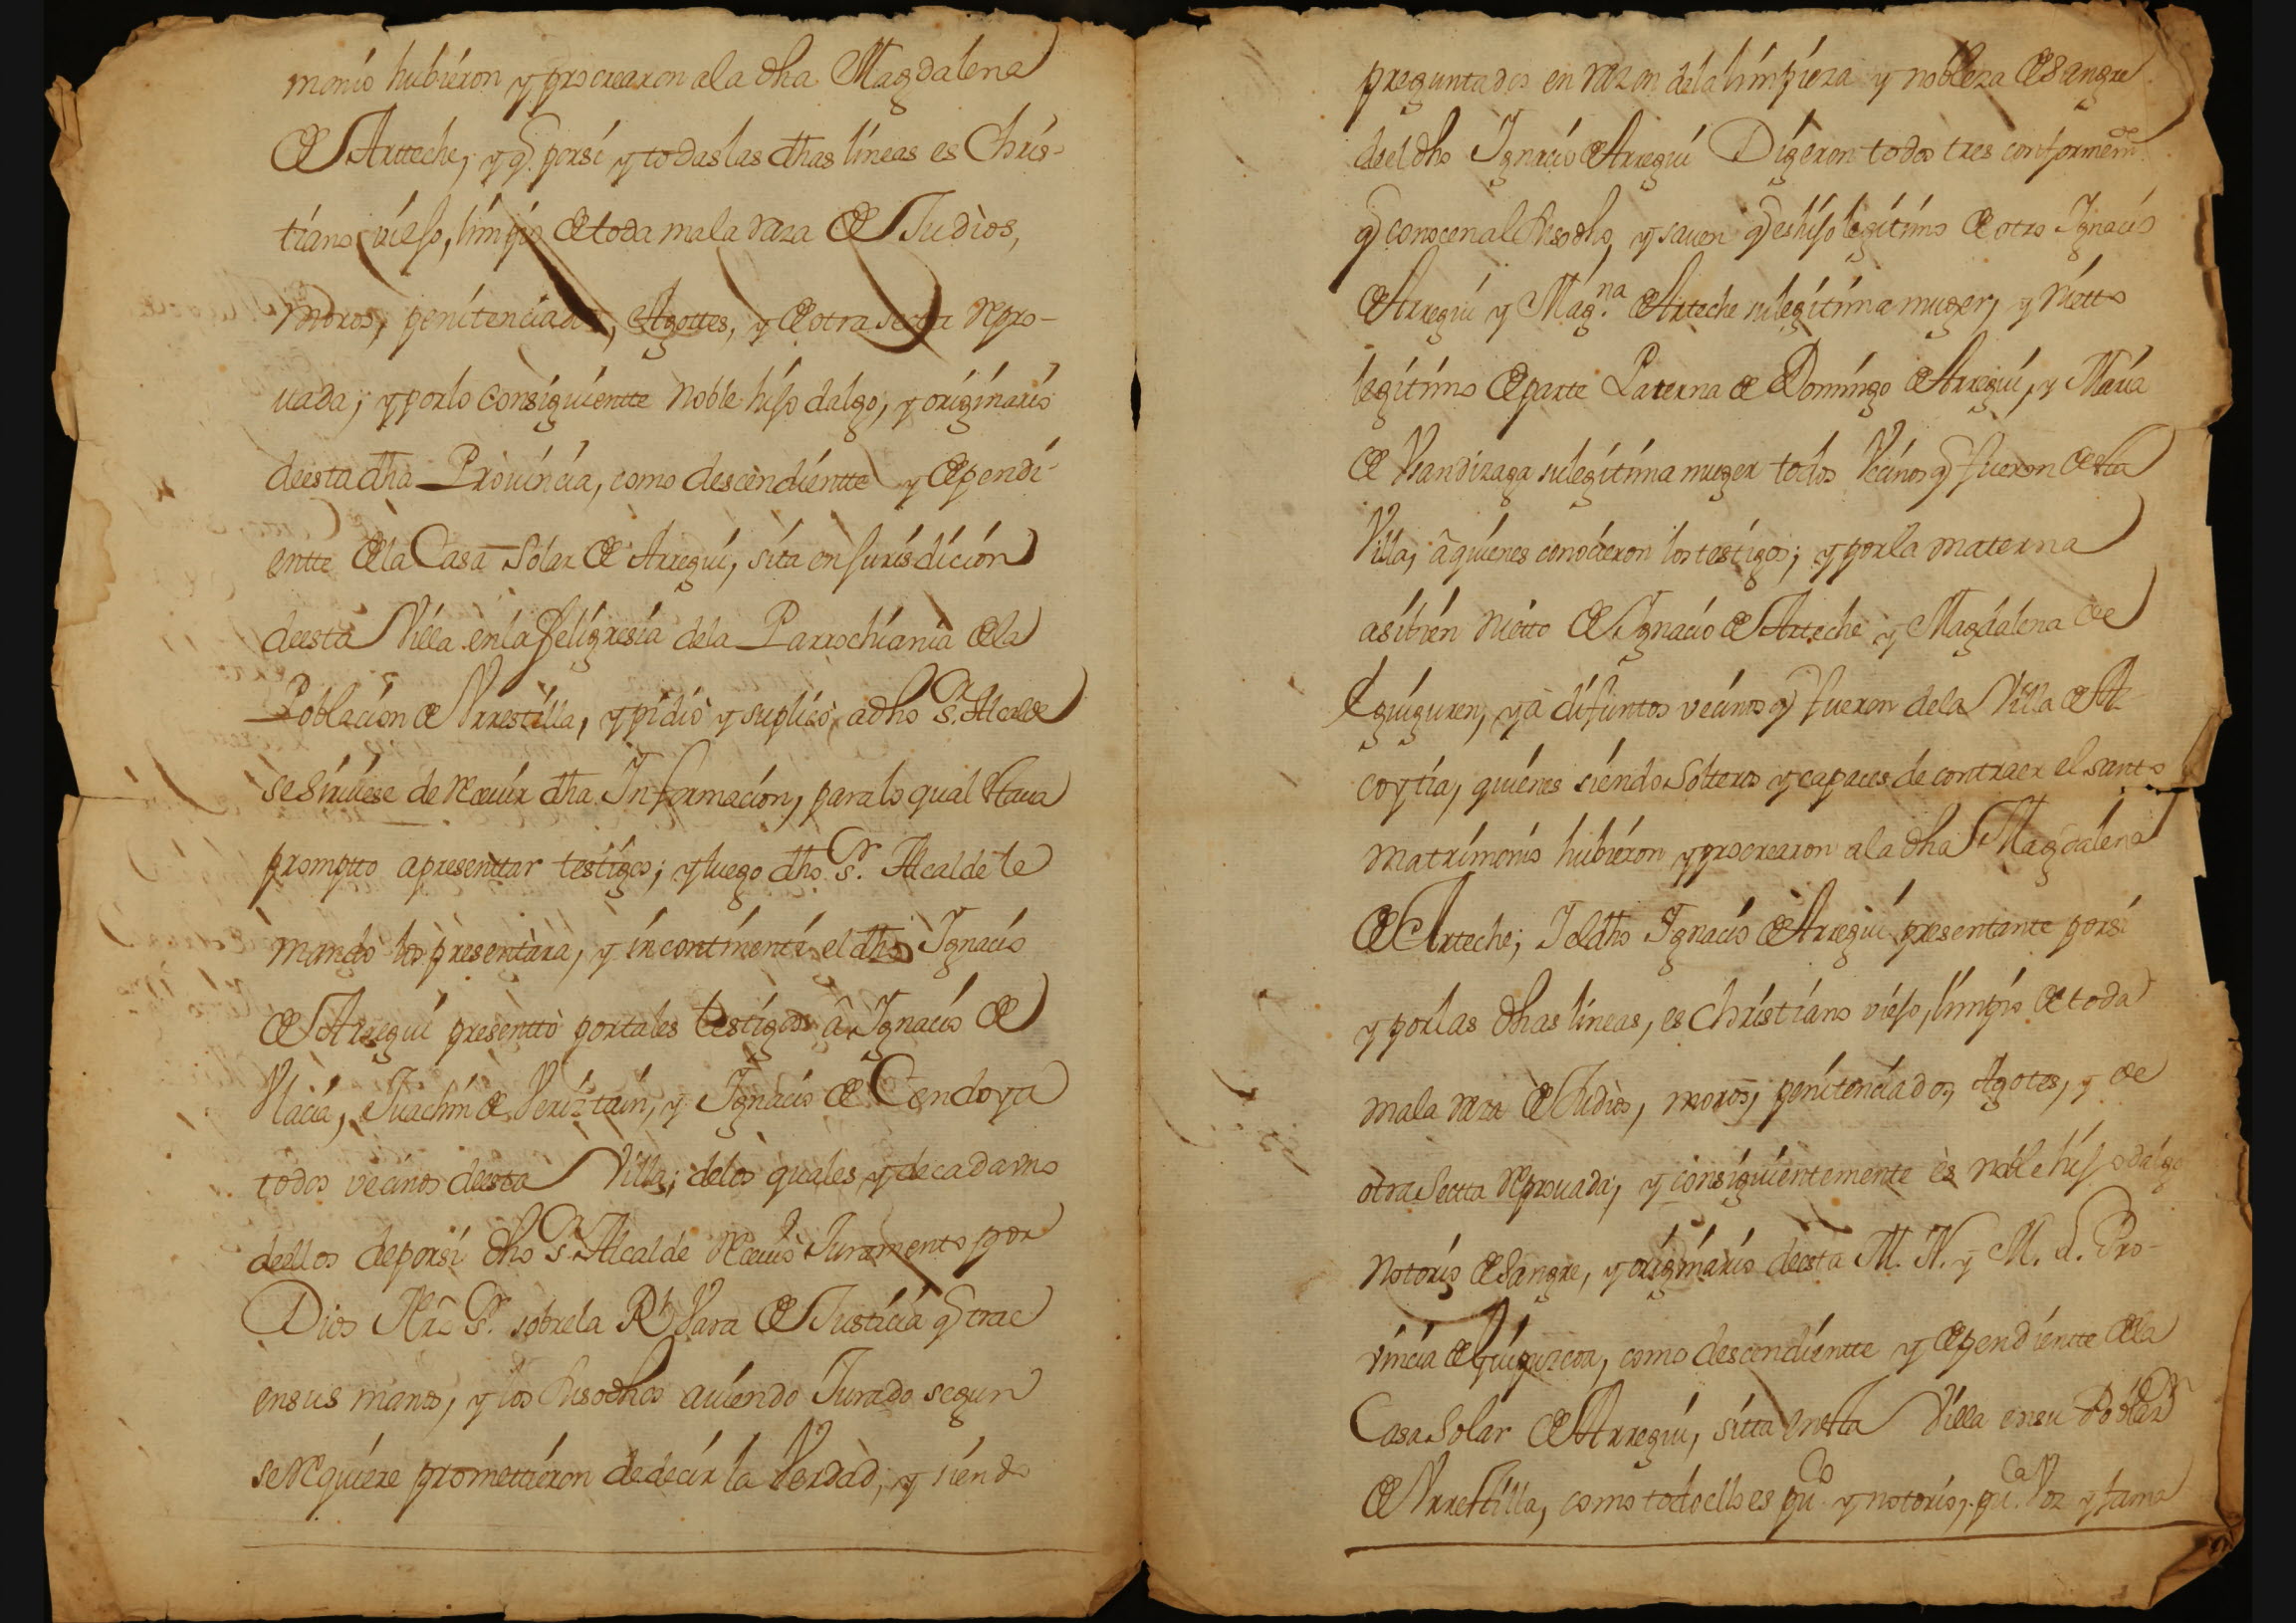 monio hubieron y procrearon ala dha Magdalena
de Arteche, y q̃ porsi y todaslas dhas lineas es Chris-
tiano viejo, limpio de toda mala raza de Judios,
moros, penitenciados, Agottes, y de otra secta repro-
uada; y porlo consiguientte noble hijo dalgo, y originario
deesta dha Prouincia, como descendientte y dependi-
entte dela Casa Solar de Arregui, sita en jurisdicion
deesta Villa en la feligresia dela Parrochiania dela
Poblacion de Vrrestilla, y pidiò y suplicò adho S.r Alcalde
se siruiese de receuir dha Informacion, para lo qual estaua
prompto apresenttar testigos; y luego dho S.r Alcalde le
mandò los presentàra, y incontinenti el dho Ignacio
de Arregui presenttò por tales testigos â Ignacio de
Vlacia, Juachin de Veriztain, y Ignacio de Cendoya
todos vecinos deesta Villa; delos quales y de cada vno
dellos deporsi dho S.r Alcalde receuiò Juramento por
Dios Nr̃o S.r sobrela R.l Vara de Justicia q̃ trae
ensus manos, y los susodhos auiendo Jurado segun
se requiere promettieron de decir la Verdad, y siendo
preguntados en razon dela limpieza y nobleza de sangre
deel dho Ignacio de Arregui Digeron todos tres conformem.te
q̃ conocen al susodho, y sauen q̃ es hijo legitimo de otro Ignacio
de Arregui y Mag.na de Arteche su legitima muger, y Nietto
legitimo de parte Paterna de Domingo de Arregui, y Maria
de Vsandizaga su legitima muger todos Vecinos q̃ fueron de esta
Villa, â quienes conocieron los testigos; y por la materna
asibien nietto de Ignacio de Arteche y Magdalena de
Eguiguren, ya difuntos vecinos q̃ fueron dela Villa de Az-
coytia, quienes siendo Solteros y capaces de contraer el santo
matrimonio hubieron y procrearon ala dha Magdalena
de Arteche; I el dho Ignacio de Arregui presentante porsi
y porlas dhas lineas, es christiano viejo, limpio de toda
mala raza de Judios, moros, penitenciados, Agotes, y de
otra Sectta reprouada, y consiguientemente ès noble hijo dalgo
notorio de sangre, y originario deesta M. N. y M. L. Pro-
vincia de Guipuzcoa, como descendientte y dependientte dela
Casa Solar de Arregui, sitta en esta Villa en su Poblaz.n
de Vrrestilla, como todo ello es pu.co y notorio, pu.ca Voz y fama